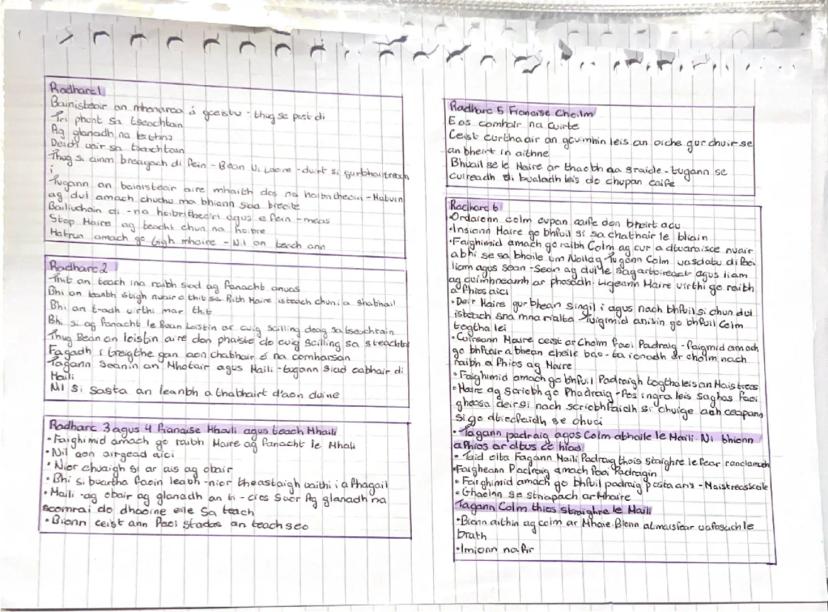 Radharc 1
Bainisteoir an mhonarca á ceistiu - thug se post di
Tri phunt sa tseachtain
Ag glanadh na
Deich uair sa tseachtain
Thug si ainm breagach di fein - Bean Ui Laoire - duirt si gur bhaintreach
i
Tugann an bainisteoir aire mhaith dos na hoibritheoiri - Matrun
ag dul amach chucu ma bhionn siad breoite
Bailiuchain di - na hoibritheoiri agus e fein - meas
Stop Maire ag teacht chun na hoibre
Matrun amach go tigh Mhaire - Nil an teach ann
Radharc 2
Thit an teach ina raibh siad ag fanacht anuas
Bhi an leanbh istigh nuair a thit se Rith Maire isteach chun i a shabhail
Bhi an tradh uirthi mar thit
Bhi si ag fanacht le Bean Loistin ar cuig scilling deag sa tseachtain
Thug Bean an loistin aire don phaiste do cuig scilling sa steachtai
Fagadh i breoithe gan aon chabhair o na comharsan
Tagann Seanin an Mhotair agus Maili - tugann siad cabhair di
Maili
Nil si sasta an leanbh a thabhairt d'aon duine
Radharc 3 agus 4 Fianaise Mhaili agus teach Mhaili
• Faighimid amach go raibh Maire ag fanacht le Mhaili
• Nil aon airgead aici
• Nior chuaigh si ar ais ag obair
• Bhi si buartha faoin leabh - nior theastaigh uaithi i a fhagail
• Maili - ag obair ag glanadh an ti - cios saor Ag glanadh na
seomrai do dhaoine eile sa teach
• Bionn ceist ann faoi stadas an teach seo
Radharc 5 Fianaise Cholm
E os comhair na cuirte
Ceist curtha air an gcuimhin leis an oiche gur chuir se
an bheirt in aithne
Bhuail se le Maire ar thaobh na sraide - tugann se
cuireadh di bualadh leis do chupan caife
Radharc 6
• Ordaionn Colm cupan caife don bheirt acu
• Insionn Maire go bhfuil si sa chathair le bliain
• Faighimid amach go raibh Colm ag cur a tuairisce nuair
a bhi se sa bhaile um Nollaig Tugann Colm uasdatu di faoi
Liam agus Sean - Sean ag dul le sagartoireacht agus Liam
ag cuimhneamh ar phosadh - Ligeann Maire uirthi go raibh
a fhios aici
• Deir Maire gur bhean singil i agus nach bhfuil si chun dul
isteach sna mna rialta Tuigimid ansin go bhfuil Colm
togtha lei
• Cuireann Maire ceist ar Cholm faoi Padraig - Faigmid amach
go bhfuair a bhean cheile bas - ba ionadh ar cholm nach
raibh a fhios ag Maire
• Faighimid amach go bhfuil Padraigh togtha leis an Maistreas
• Maire ag scriobh go Phadraig - Fos in gra leis saghas faoi
gheasa deir si nach scriobhfaidh si chuige ach ceapann
si go dtiocfaidh se chuici
• Tagann padraig agus Colm abhaile le Maili Ni bhionn
a fhios ar dtus ce hiad
• Taid olta Fagann Maili Padraig thios staighre le fear
• Faigheann Padraig amach faoi Padraigin
• Faighimid amach go bhfuil padraig posta aris - Maistreas scoile
• Ghlaonn se striapach ar Mhaire
Tagann Colm thios staighre le Maili
• Bionn aithin ag colm ar Mhaire Bionn atmaisfear uafasach le
brath
• Imionn na fir